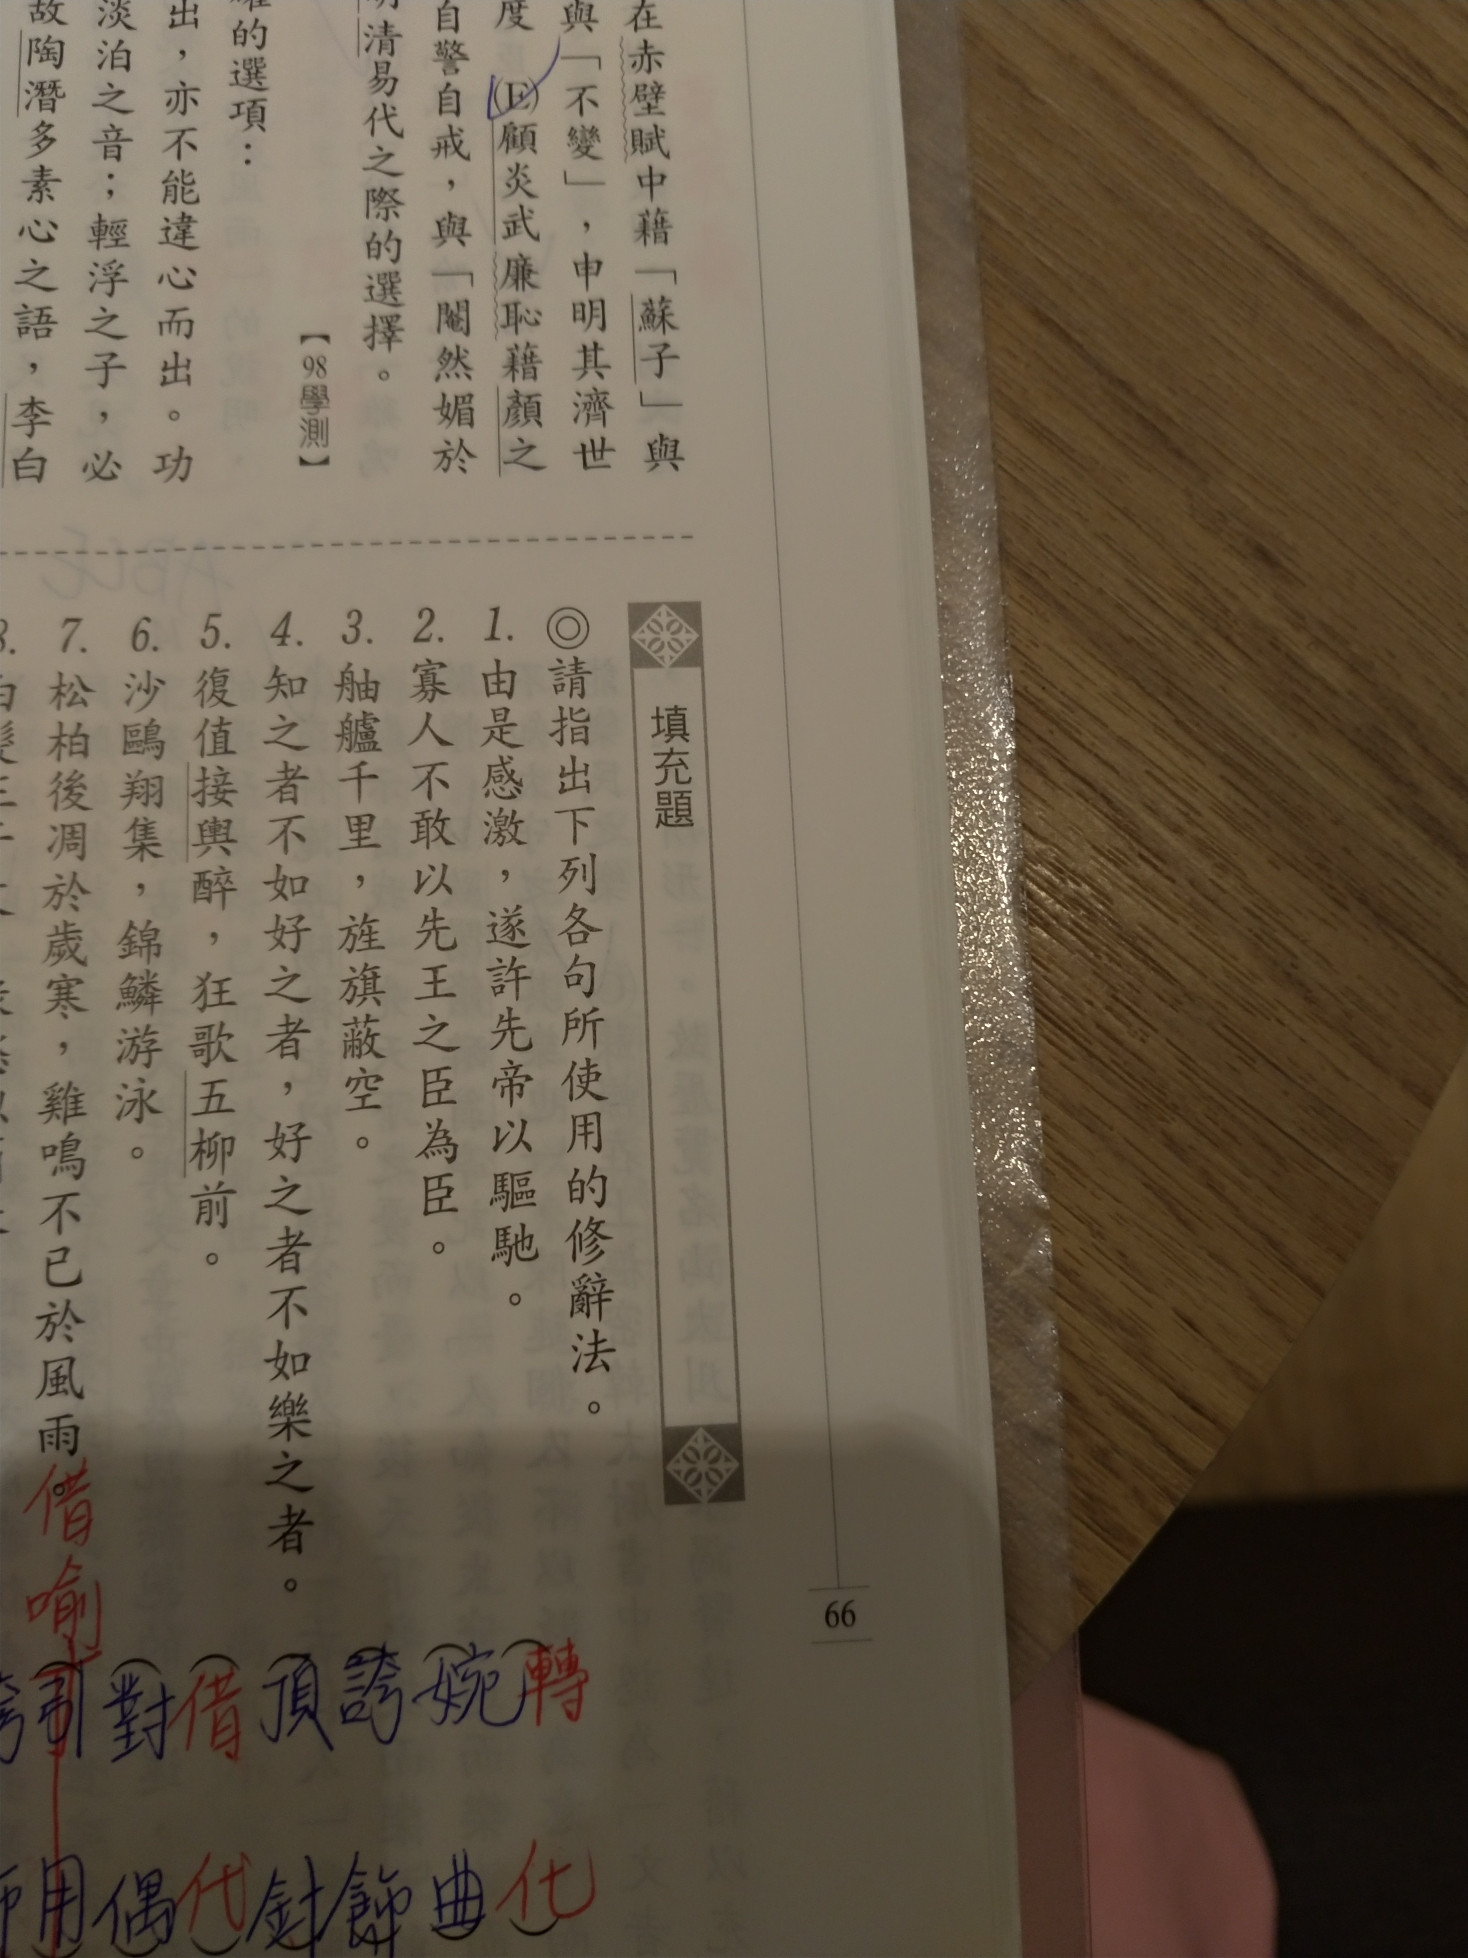 在赤壁賦中藉「蘇子」與
與「不變」，申明其濟世
度 (E)顧炎武廉恥藉顏之
自警自戒，與「閹然媚於
明清易代之際的選擇。
【98學測】
的選項：
出，亦不能違心而出。功
淡泊之音；輕浮之子，必
故陶潛多素心之語，李白
填充題
◎請指出下列各句所使用的修辭法。
1. 由是感激，遂許先帝以驅馳。
轉化
2. 寡人不敢以先王之臣為臣。
婉曲
3. 舳艫千里，旌旗蔽空。
誇飾
4. 知之者不如好之者，好之者不如樂之者。
頂針
5. 復值接輿醉，狂歌五柳前。
借代
6. 沙鷗翔集，錦鱗游泳。
對偶
7. 松柏後凋於歲寒，雞鳴不已於風雨。
借喻
引用
66